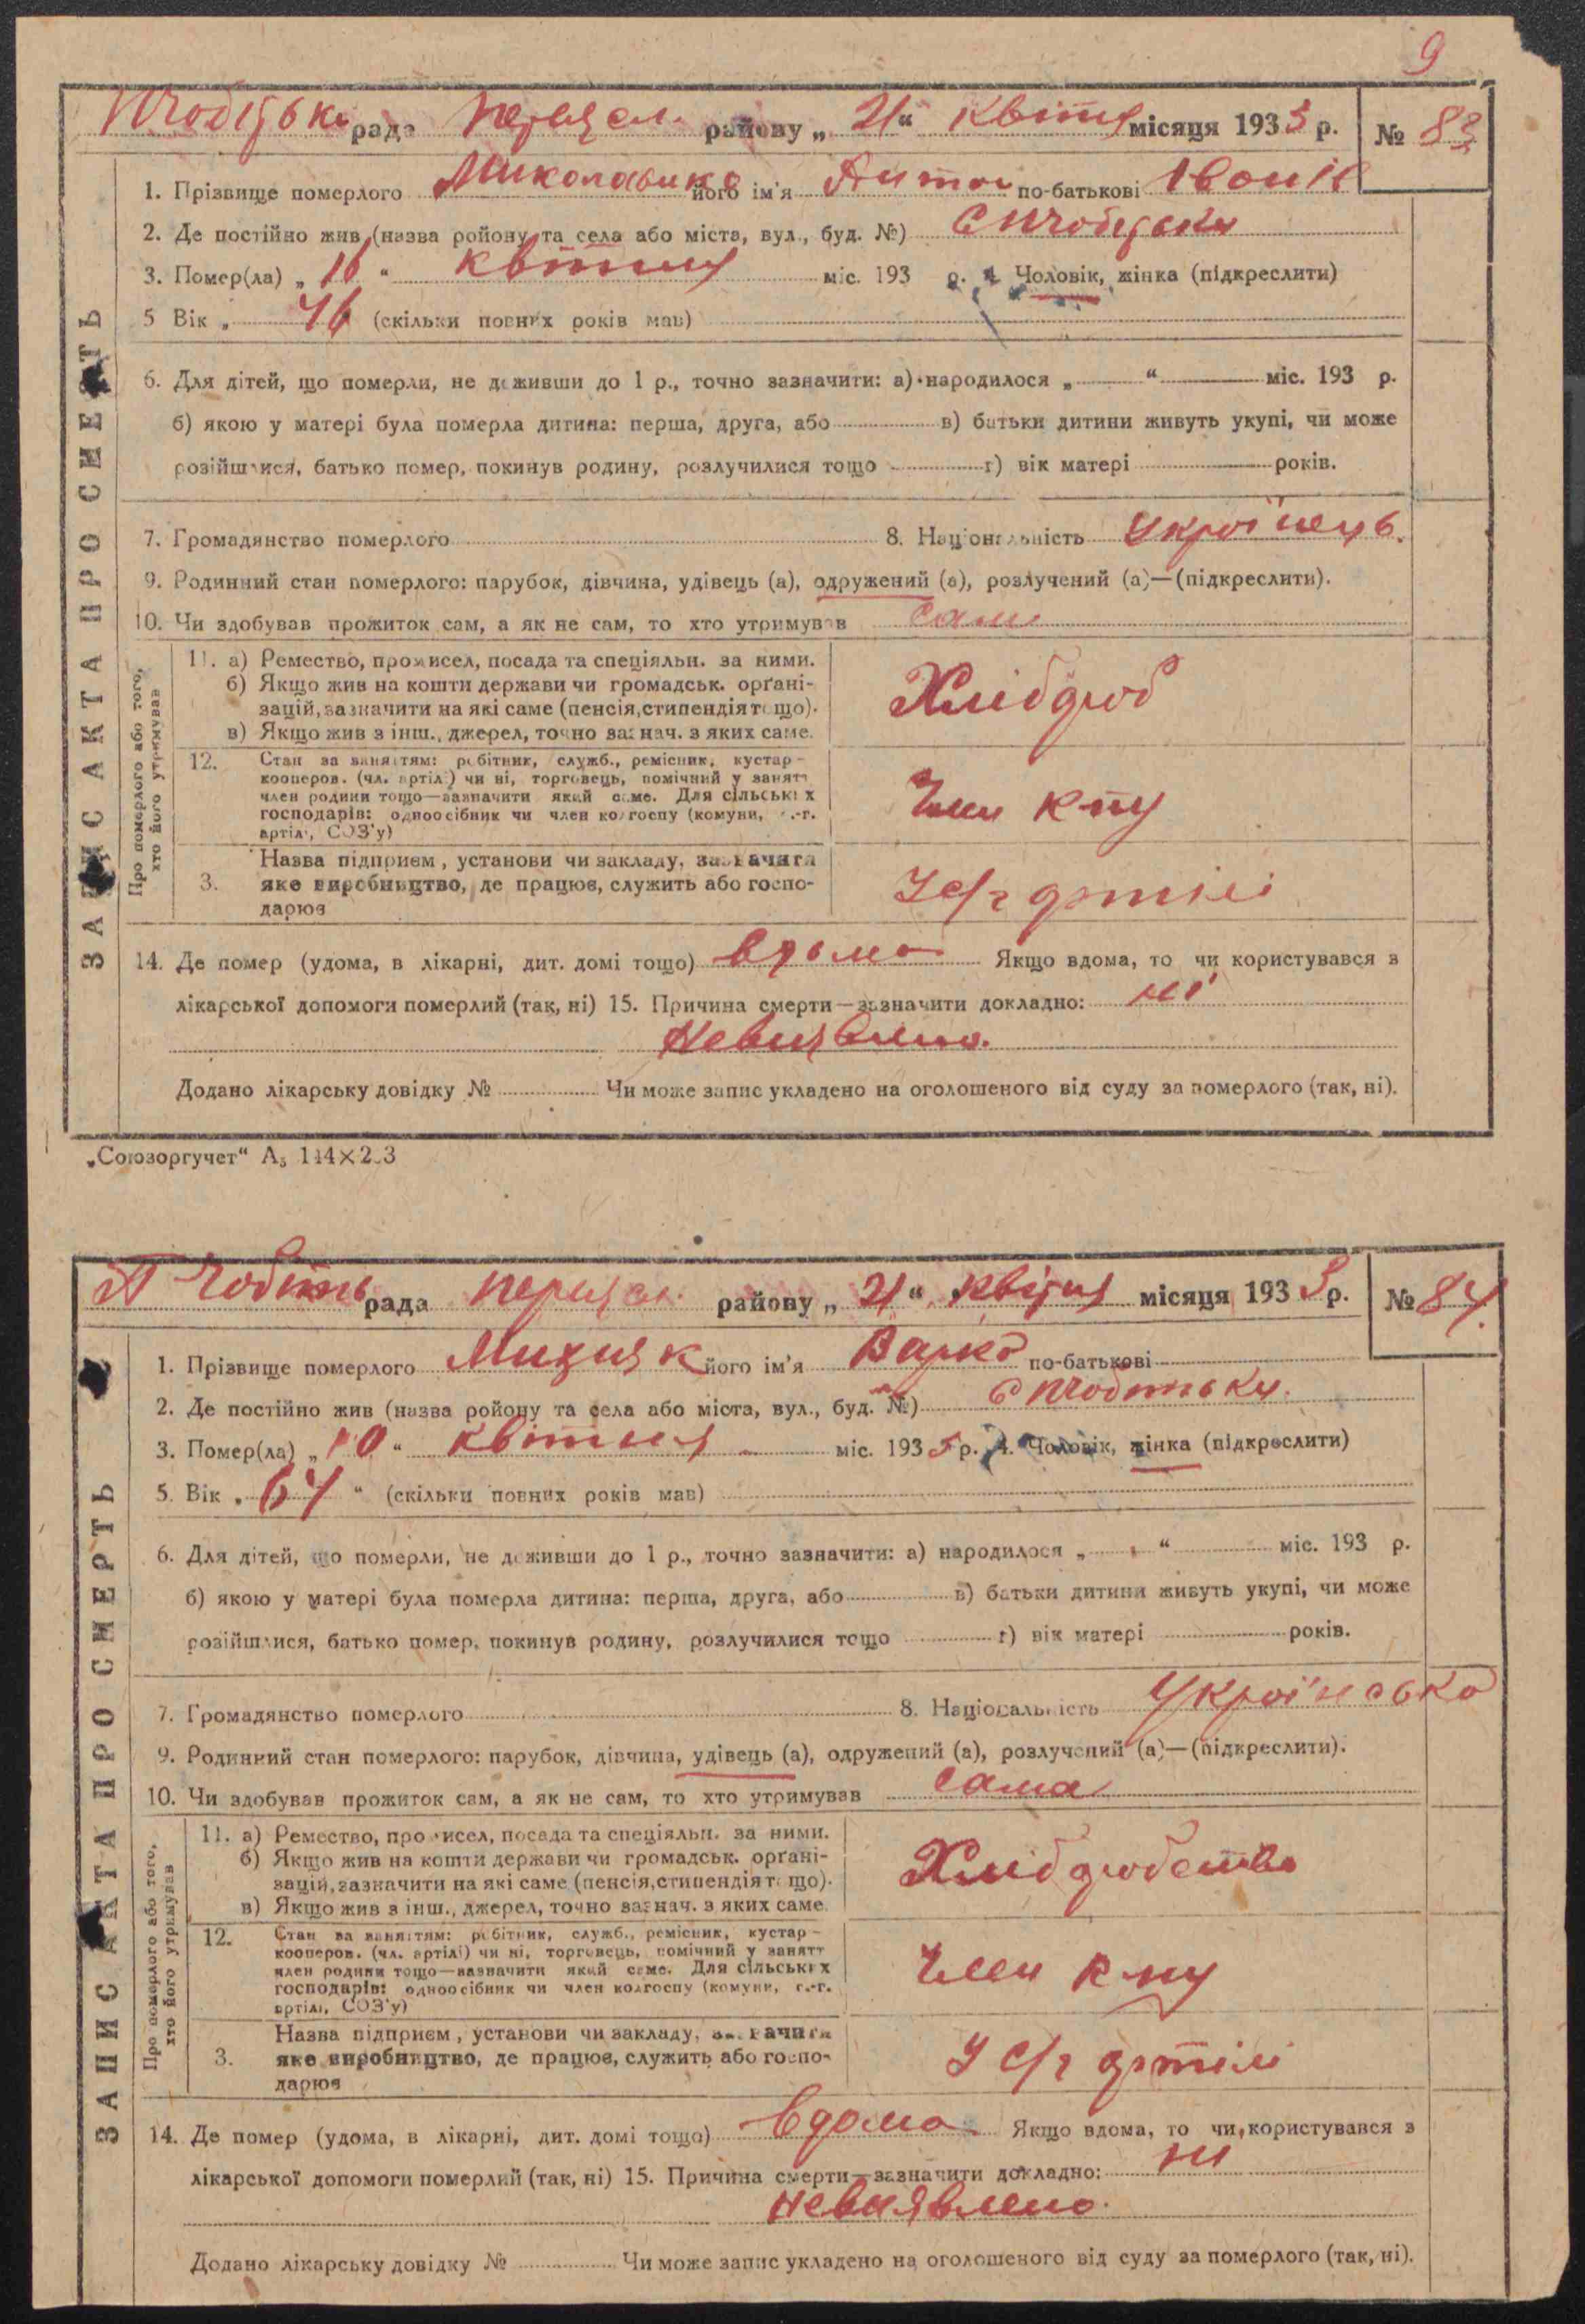 9
рада Переясл. району „ 21 “ Квітня місяця 1933 р. № 83
1. Прізвище померлого його ім'я Антон по-батькові
2. Де постійно жив (назва району та села або міста, вул., буд. №)
3. Помер(ла) „ 16 “ квітня міс. 193 р. 4. Чоловік, жінка (підкреслити)
5 Вік „ 46 (скільки повних років мав)
6. Для дітей, що померли, не доживши до 1 р., точно зазначити: а) народилося „ “ міс. 193 р.
б) якою у матері була померла дитина: перша, друга, або в) батьки дитини живуть укупі, чи може
розійшлися, батько помер, покинув родину, розлучилися тощо г) вік матері років.
7. Громадянство померлого 8. Національність Українець.
9. Родинний стан померлого: парубок, дівчина, удівець (а), одружений (а), розлучений (а)—(підкреслити).
10. Чи здобував прожиток сам, а як не сам, то хто утримував сам
ЗАПИС АКТА ПРО СМЕРТЬ
Про померлого або того, хто його утримував
11. а) Ремество, промисел, посада та спеціяльн. за ними.
б) Якщо жив на кошти держави чи громадськ. орґані-
зацій, зазначити на які саме (пенсія, стипендія тощо).
в) Якщо жив з інш., джерел, точно зазнач. з яких саме.
Хлібороб
12. Стан за заняттям: робітник, служб., ремісник, кустар-
кооперов. (чл. артілі) чи ні, торговець, помічний у занятт
член родини тощо—зазначити який саме. Для сільських
господарів: одноосібник чи член колгоспу (комуни, с.-г.
артілі, СОЗ'у)
Член
3. Назва підприєм, установи чи закладу, зазначити
яке виробництво, де працює, служить або госпо-
дарює
У с/г артілі
14. Де помер (удома, в лікарні, дит. домі тощо) вдома Якщо вдома, то чи користувався з
лікарської допомоги померлий (так, ні) 15. Причина смерти—зазначити докладно: ні
Невиявлено.
Додано лікарську довідку № Чи може запис укладено на оголошеного від суду за померлого (так, ні).
„Союзоргучет“ А₅ 144×203
рада Переясл. району „ 21 “ квітня місяця 1933 р. № 84
1. Прізвище померлого його ім'я Варка по-батькові
2. Де постійно жив (назва району та села або міста, вул., буд. №)
3. Помер(ла) „ 10 “ квітня міс. 193 р. 4. Чоловік, жінка (підкреслити)
5. Вік „ 64 “ (скільки повних років мав)
6. Для дітей, що померли, не доживши до 1 р., точно зазначити: а) народилося „ “ міс. 193 р.
б) якою у матері була померла дитина: перша, друга, або в) батьки дитини живуть укупі, чи може
розійшлися, батько помер, покинув родину, розлучилися тощо г) вік матері років.
7. Громадянство померлого 8. Національність Українська
9. Родинний стан померлого: парубок, дівчина, удівець (а), одружений (а), розлучений (а)—(підкреслити).
10. Чи здобував прожиток сам, а як не сам, то хто утримував сама
ЗАПИС АКТА ПРО СМЕРТЬ
Про померлого або того, хто його утримував
11. а) Ремество, промисел, посада та спеціяльн. за ними.
б) Якщо жив на кошти держави чи громадськ. орґані-
зацій, зазначити на які саме (пенсія, стипендія тощо).
в) Якщо жив з інш., джерел, точно зазнач. з яких саме.
Хліборобство
12. Стан за заняттям: робітник, служб., ремісник, кустар-
кооперов. (чл. артілі) чи ні, торговець, помічний у занятт
член родини тощо—зазначити який саме. Для сільських
господарів: одноосібник чи член колгоспу (комуни, с.-г.
артілі, СОЗ'у)
Член
3. Назва підприєм, установи чи закладу, зазначити
яке виробництво, де працює, служить або госпо-
дарює
У с/г артілі
14. Де помер (удома, в лікарні, дит. домі тощо) вдома Якщо вдома, то чи користувався з
лікарської допомоги померлий (так, ні) 15. Причина смерти—зазначити докладно: ні
невиявлено.
Додано лікарську довідку № Чи може запис укладено на оголошеного від суду за померлого (так, ні).